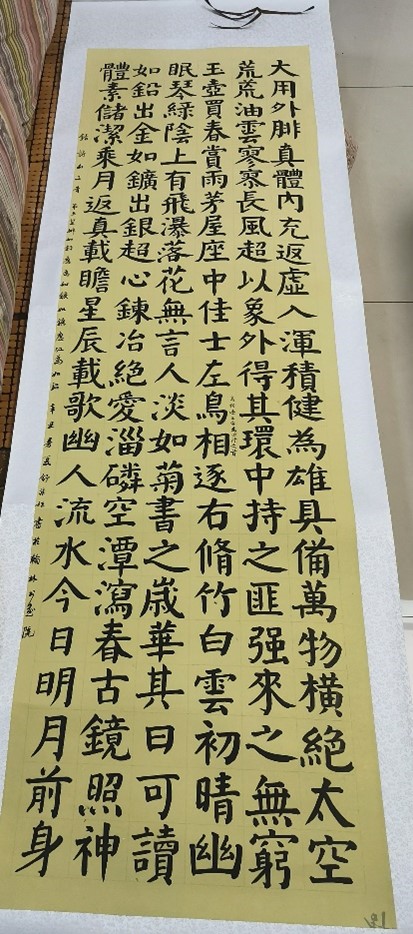 大用外腓真體內充返虛入渾積健為雄具備萬物橫絕太空
荒荒油雲寥寥長風超以象外得其環中持之匪强來之無窮
玉壺買春賞雨茅屋座中佳士左鳥相逐右脩竹白雲初晴幽
眠琴綠陰上有飛瀑落花無言人淡如菊書之歲華其日可讀
如鉛出金如鑛出銀超心鍊冶絕愛淄磷空潭瀉春古鏡照神
體素儲潔乘月返真載瞻星辰載歌幽人流水今日明月前身
辛丑春夏書於翰林書畫院